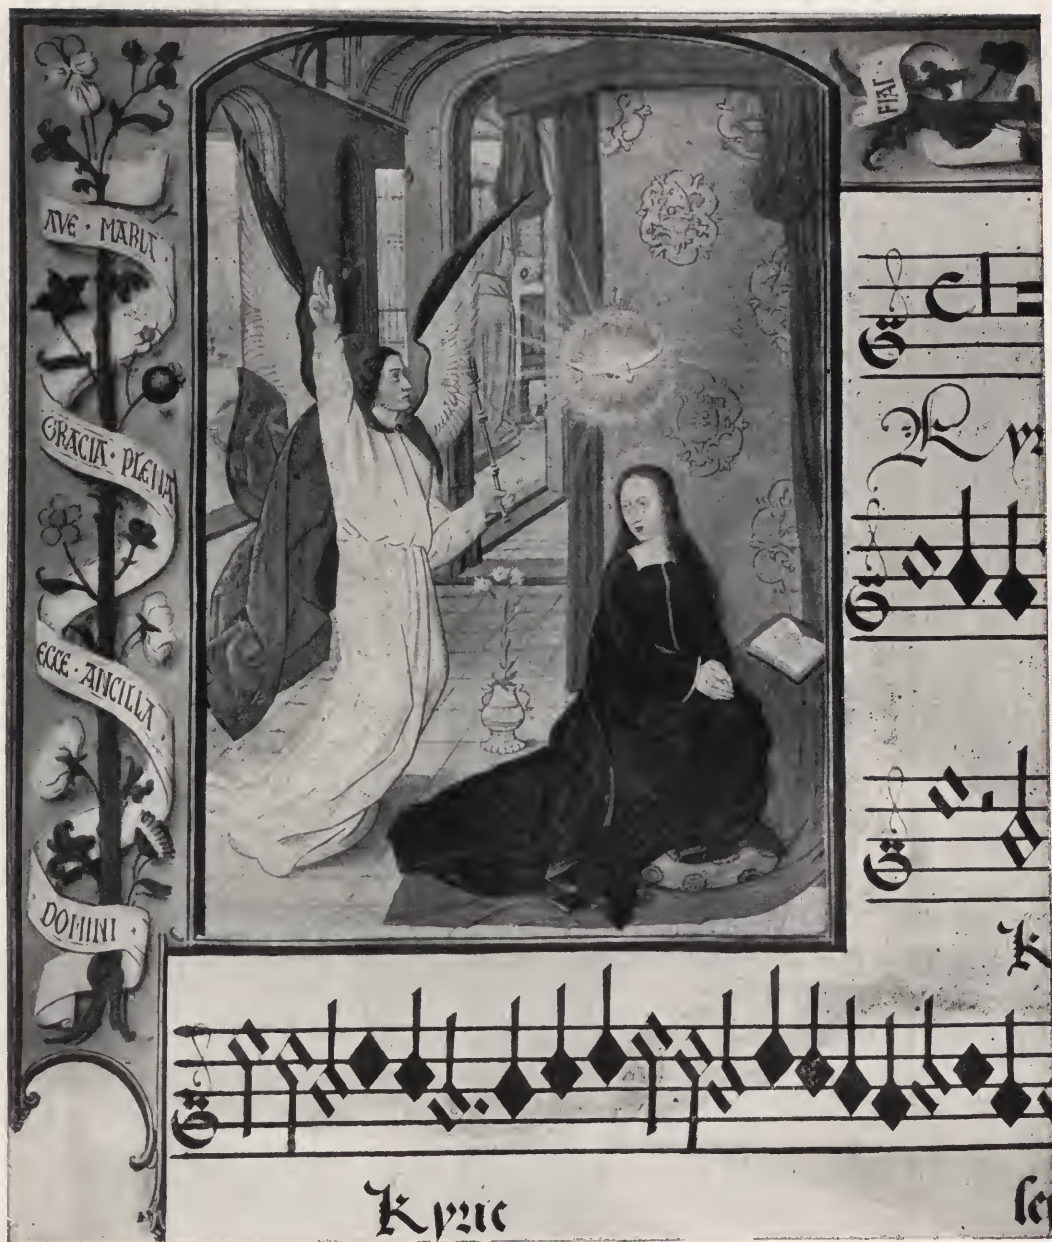 AVE · MARIA
GRACIA · PLENA
ECCE · ANCILLA
DOMINI ·
FIAT
Ky
K
Kyrie
lei